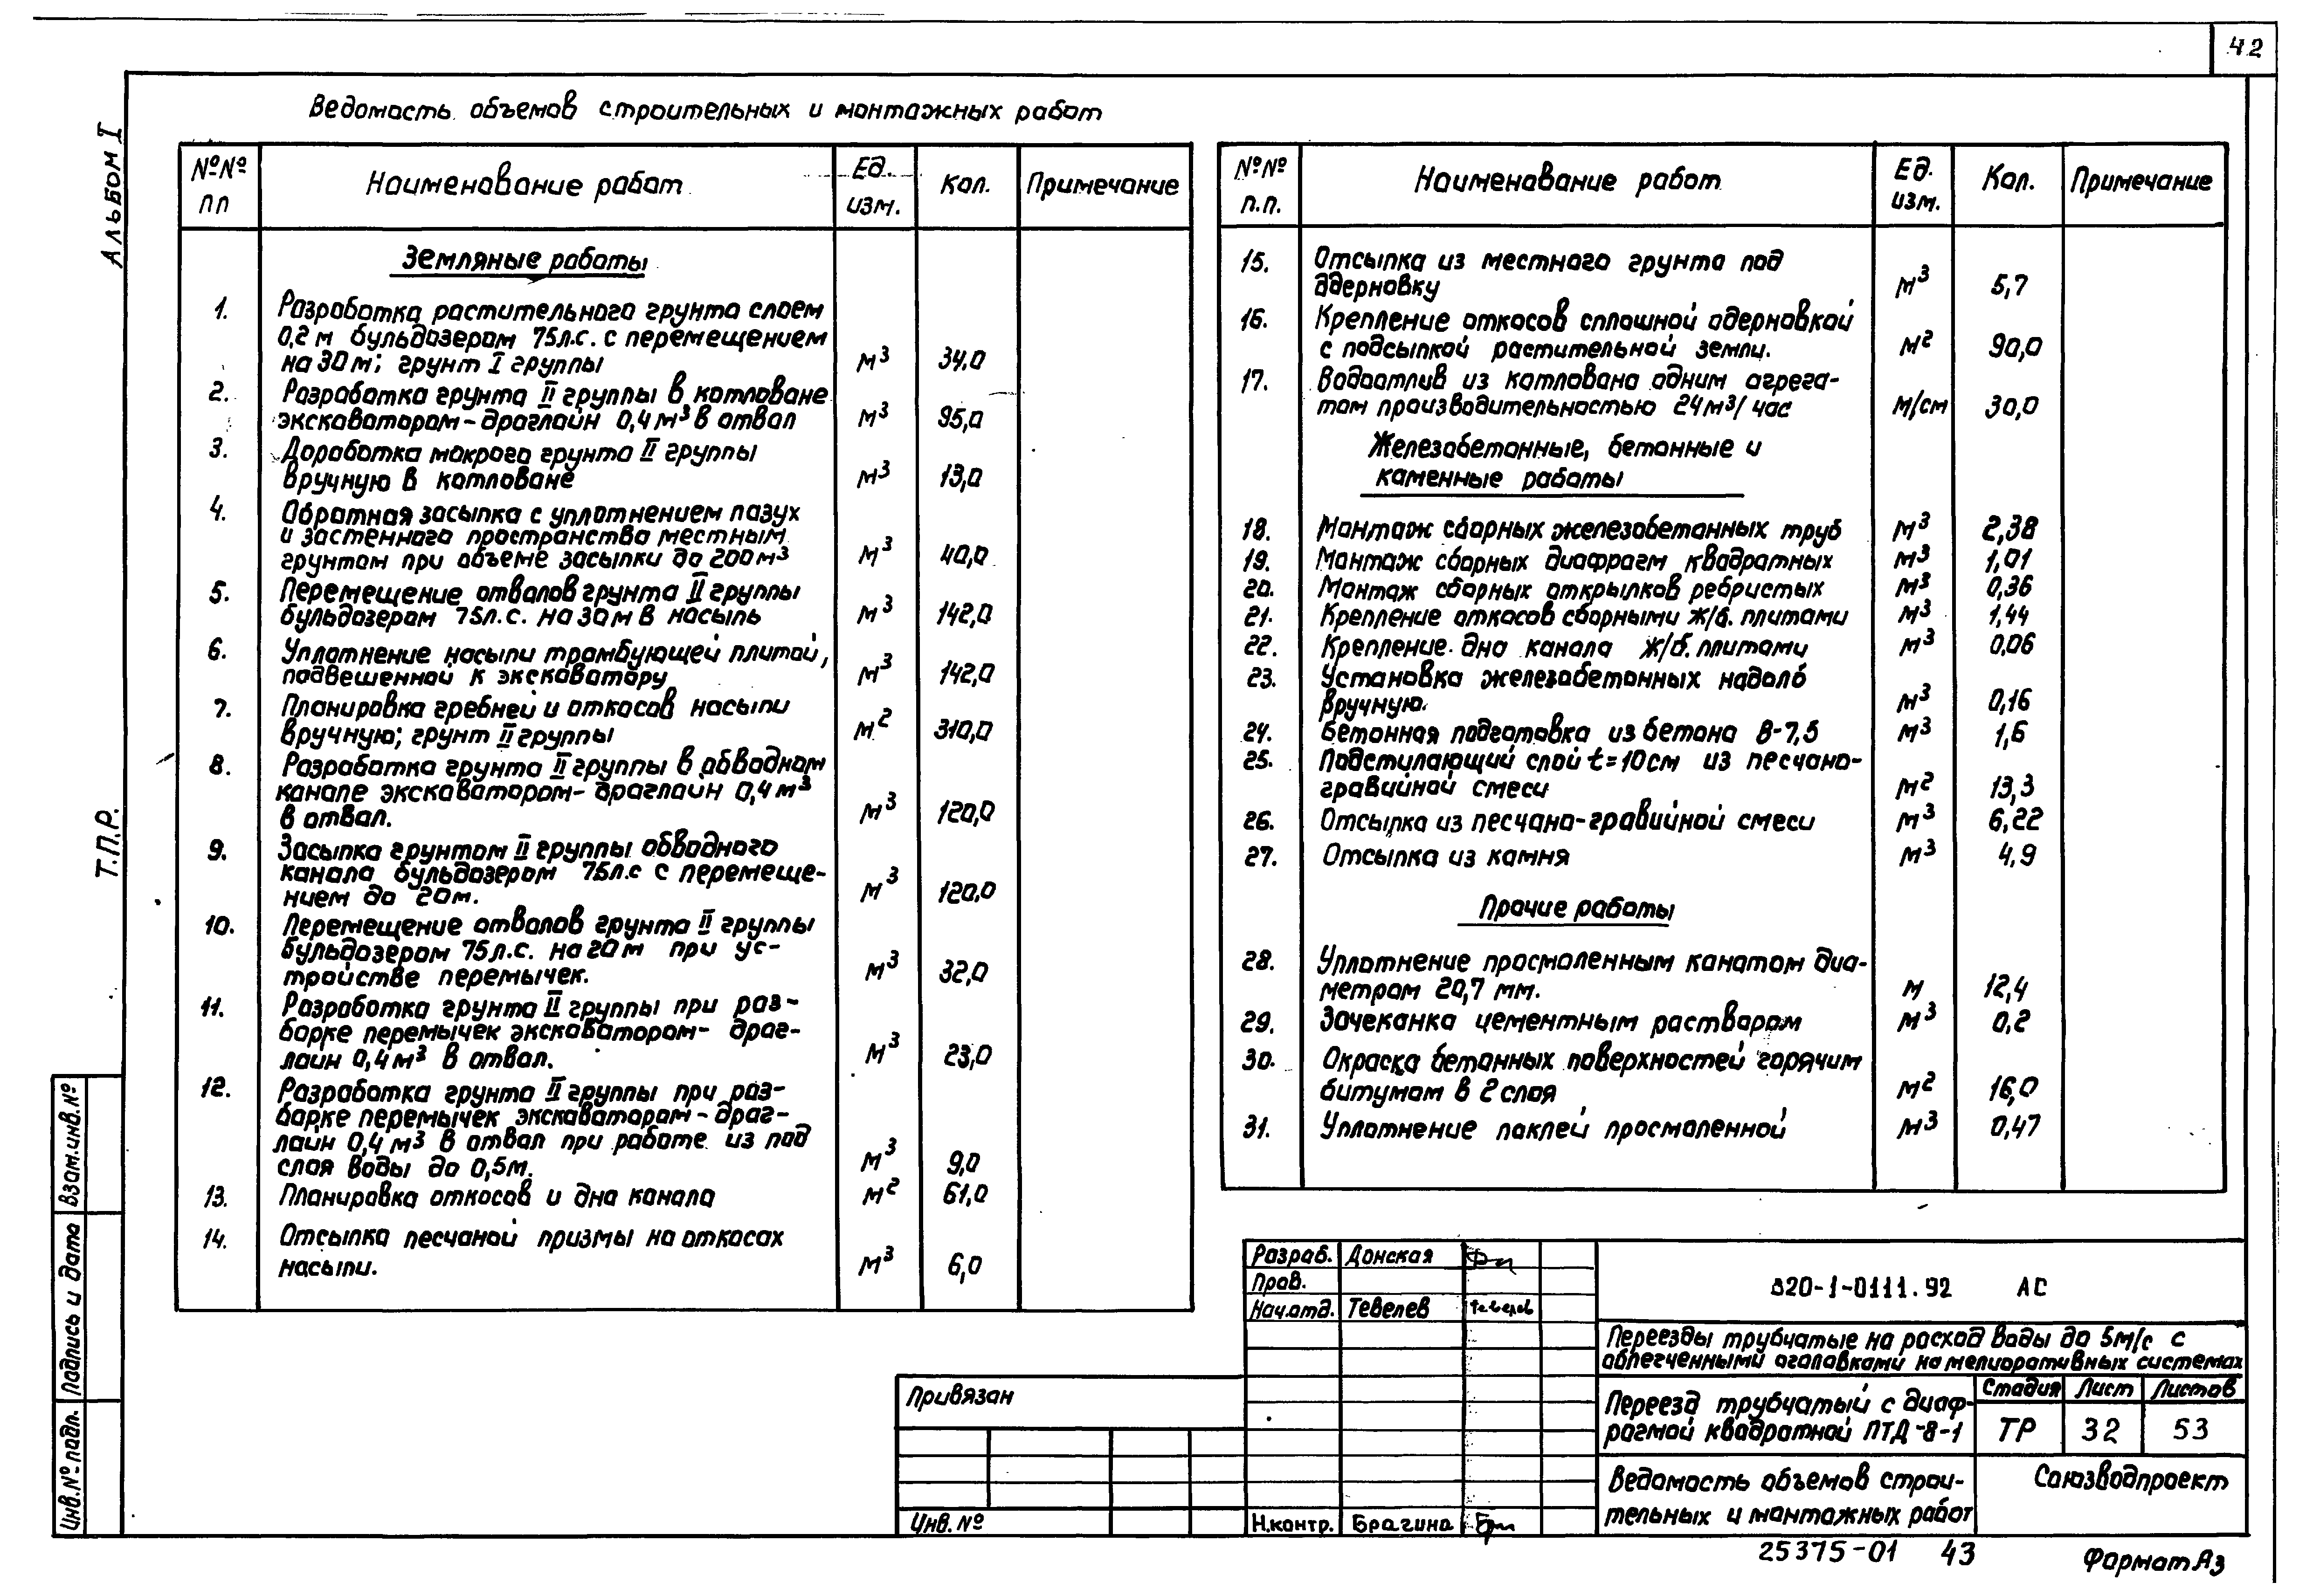 42
Ведомость объемов строительных и монтажных работ
АЛЬБОМ I
Т.П.Р.
№№ пп
Наименование работ
Ед. изм.
Кол.
Примечание
Земляные работы
1. Разработка растительного грунта слоем
0,2 м бульдозером 75л.с. с перемещением
на 30м; грунт I группы м³ 34,0
2. Разработка грунта II группы в котловане
экскаватором-драглайн 0,4м³ в отвал м³ 95,0
3. Доработка мокрого грунта II группы
вручную в котловане м³ 13,0
4. Обратная засыпка с уплотнением пазух
и застенного пространства местным
грунтом при объеме засыпки до 200м³ м³ 40,0
5. Перемещение отвалов грунта II группы
бульдозером 75л.с. на 30м в насыпь м³ 142,0
6. Уплотнение насыпи трамбующей плитой,
подвешенной к экскаватору м³ 142,0
7. Планировка гребней и откосов насыпи
вручную; грунт II группы м² 310,0
8. Разработка грунта II группы в обводном
канале экскаватором-драглайн 0,4м³
в отвал. м³ 120,0
9. Засыпка грунтом II группы обводного
канала бульдозером 75л.с с перемеще-
нием до 20м. м³ 120,0
10. Перемещение отвалов грунта II группы
бульдозером 75л.с. на 20м при ус-
тройстве перемычек. м³ 32,0
11. Разработка грунта II группы при раз-
борке перемычек экскаватором- драг-
лайн 0,4м³ в отвал. м³ 23,0
12. Разработка грунта II группы при раз-
борке перемычек экскаватором-драг-
лайн 0,4м³ в отвал при работе из под
слоя воды до 0,5м. м³ 9,0
13. Планировка откосов и дна канала м² 61,0
14. Отсыпка песчаной призмы на откосах
насыпи. м³ 6,0
№№ п.п.
Наименование работ
Ед. изм.
Кол.
Примечание
15. Отсыпка из местного грунта под
одерновку м³ 5,7
16. Крепление откосов сплошной одерновкой
с подсыпкой растительной земли. м² 90,0
17. Водоотлив из котлована одним агрега-
том производительностью 24м³/час м/см 30,0
Железобетонные, бетонные и
каменные работы
18. Монтаж сборных железобетонных труб м³ 2,38
19. Монтаж сборных диафрагм квадратных м³ 1,01
20. Монтаж сборных открылков ребристых м³ 0,36
21. Крепление откосов сборными ж/б. плитами м³ 1,44
22. Крепление дна канала ж/б. плитами м³ 0,06
23. Установка железобетонных надолб
вручную. м³ 0,16
24. Бетонная подготовка из бетона В-7,5 м³ 1,6
25. Подстилающий слой t=10см из песчано-
гравийной смеси м² 13,3
26. Отсыпка из песчано-гравийной смеси м³ 6,22
27. Отсыпка из камня м³ 4,9
Прочие работы
28. Уплотнение просмоленным канатом диа-
метром 20,7 мм. м 12,4
29. Зачеканка цементным раствором м³ 0,2
30. Окраска бетонных поверхностей горячим
битумом в 2 слоя м² 16,0
31. Уплотнение паклей просмоленной м³ 0,47
Взам.инв.№
Подпись и дата
Инв.№ подл.
Привязан
Инв.№
Разраб. Донская
Пров.
Нач.отд. Тевелев Тевелев
Н.контр. Брагина
820-1-0111.92 АС
Переезды трубчатые на расход воды до 5м/с с
облегченными оголовками на мелиоративных системах
Переезд трубчатый с диаф-
рагмой квадратной ПТД-8-1
Стадия Лист Листов
ТР 32 53
Ведомость объемов строи-
тельных и монтажных работ
Союзводпроект
25375-01 43
Формат А3